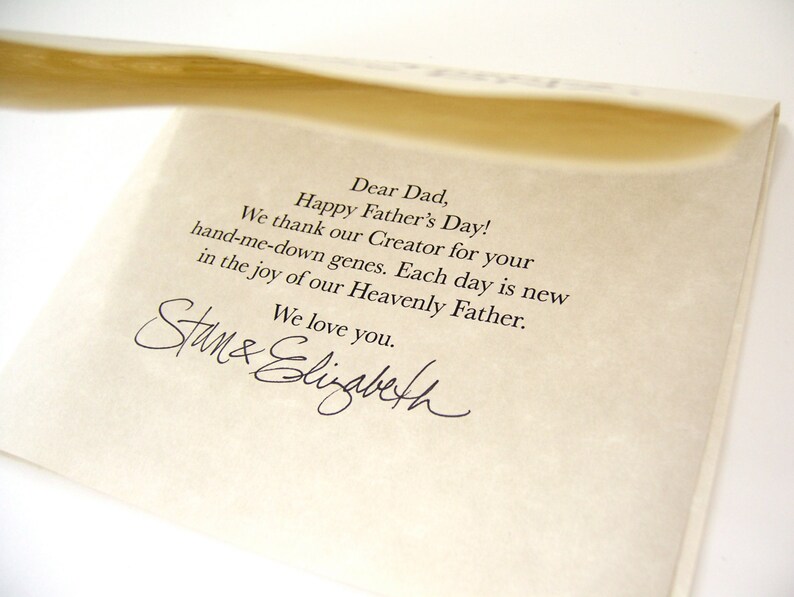 Dear Dad,
Happy Father's Day!
We thank our Creator for your
hand-me-down genes. Each day is new
in the joy of our Heavenly Father.
We love you.
Stan & Elizabeth